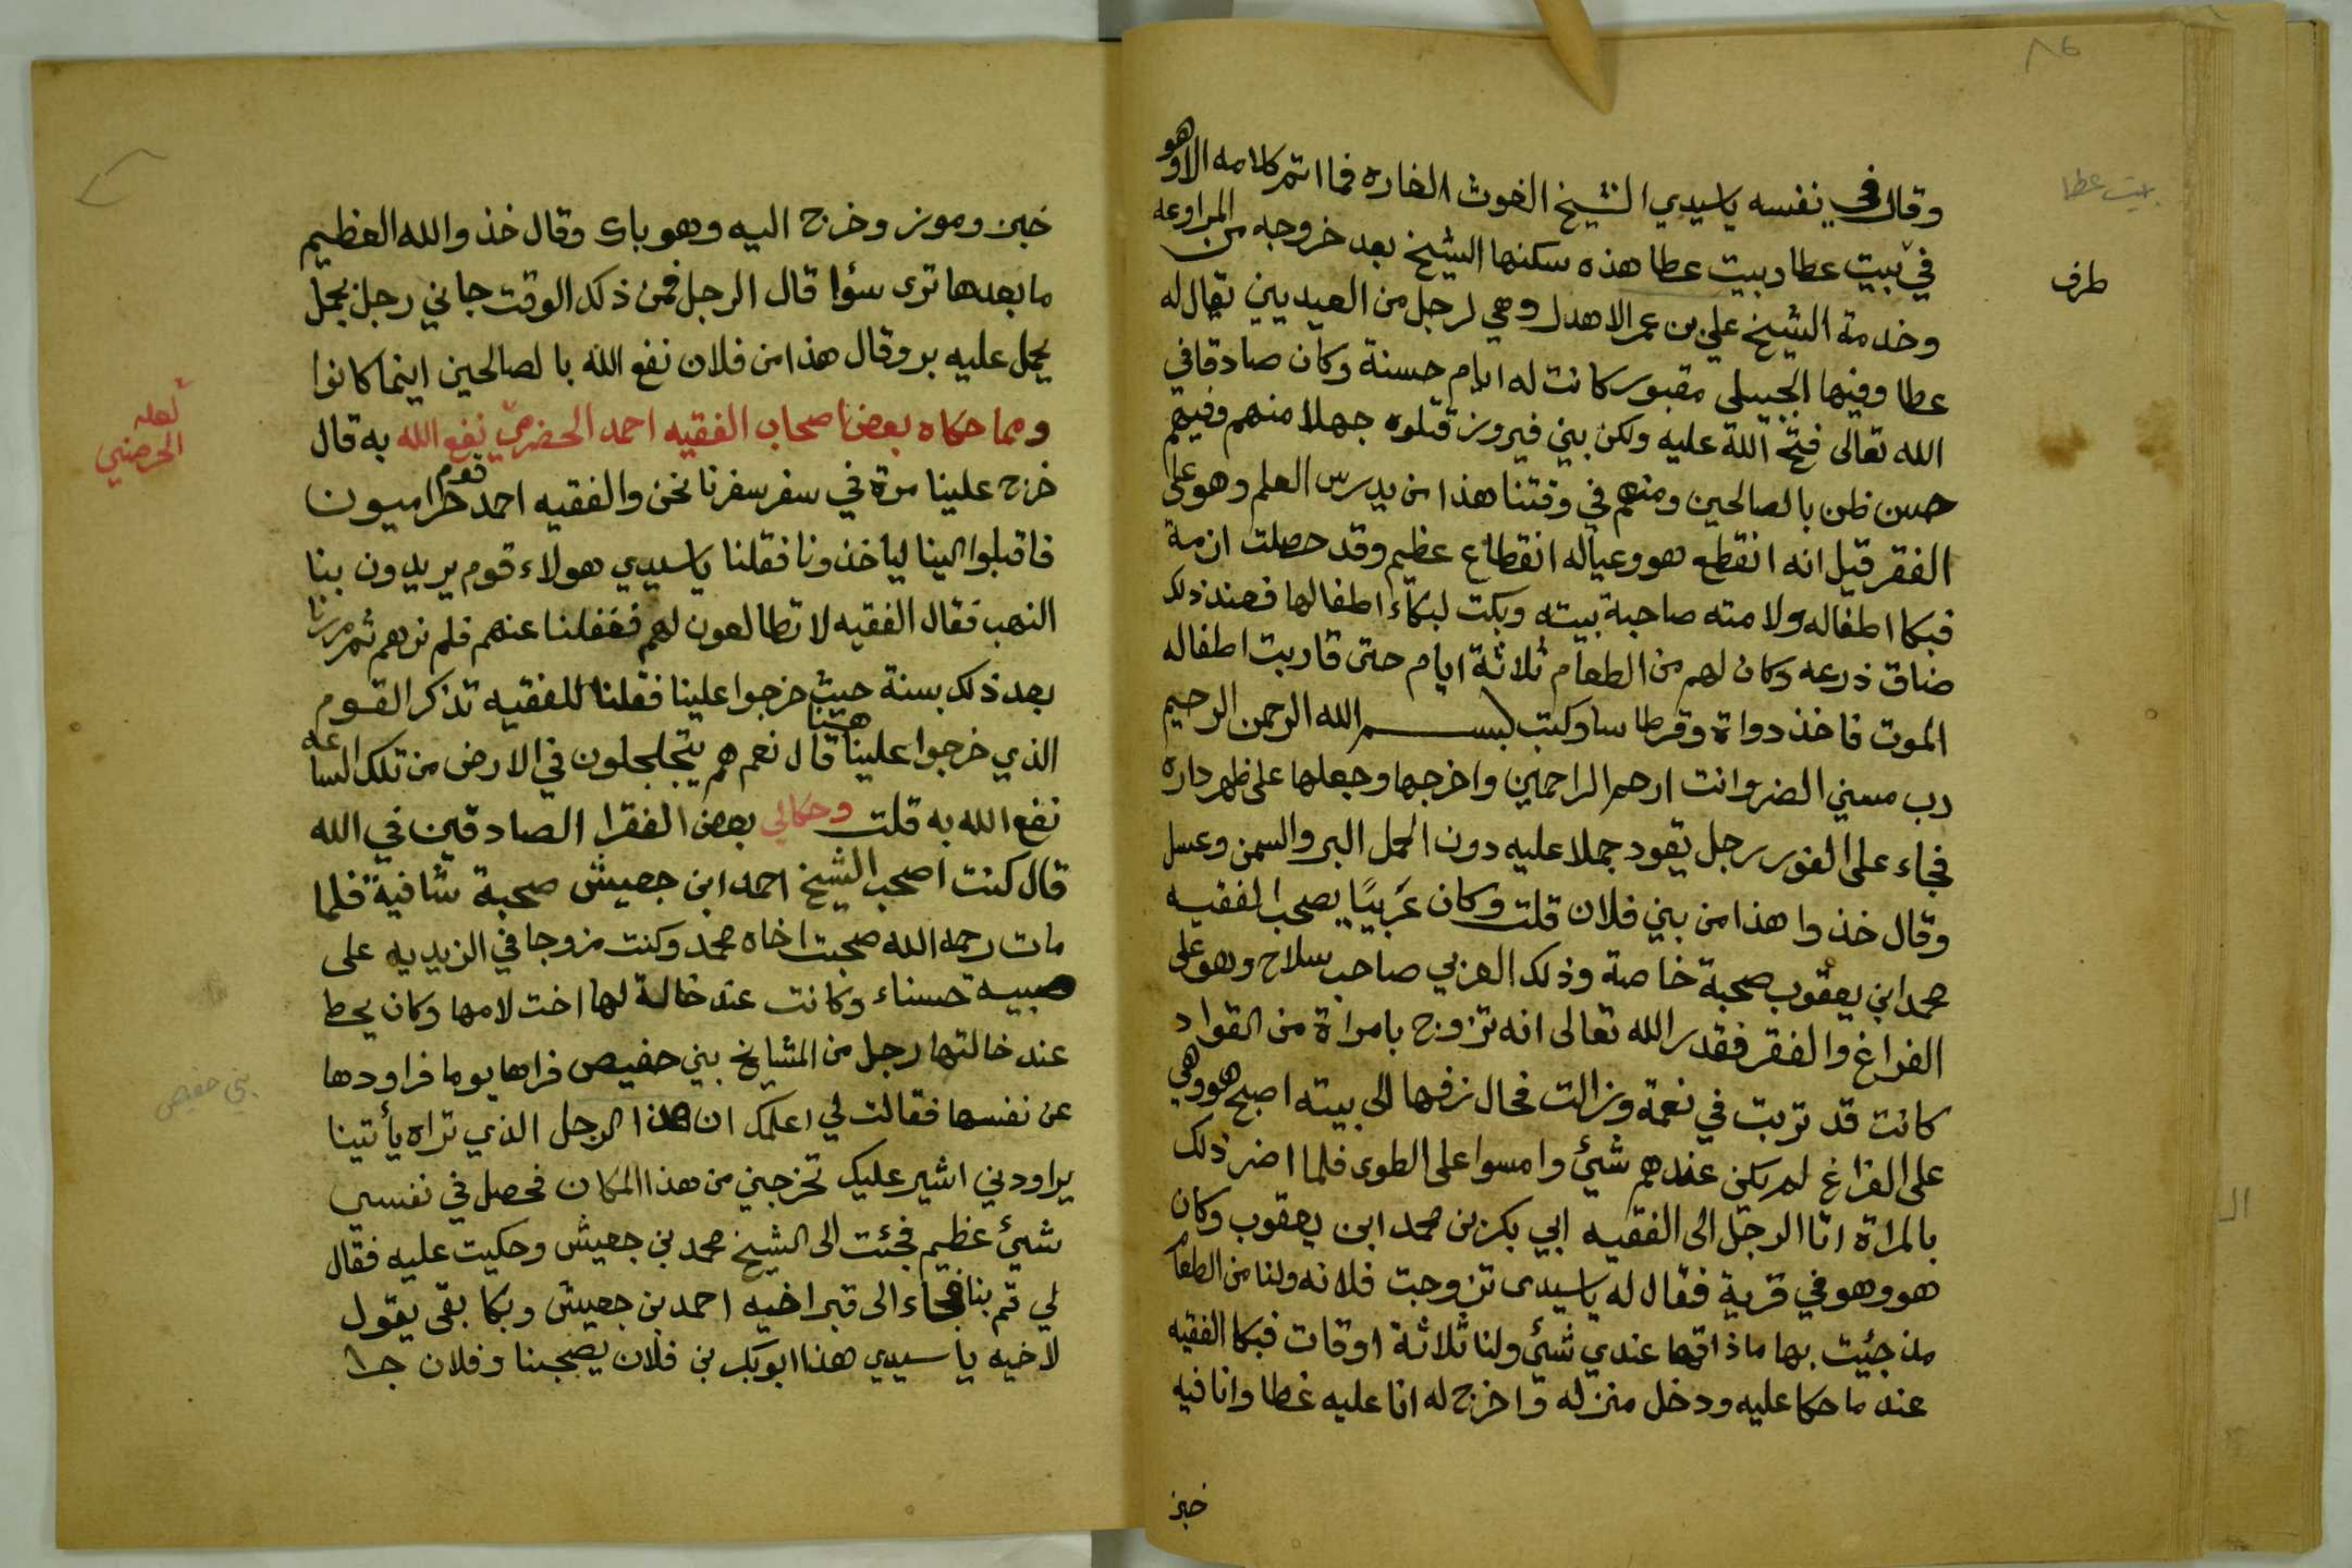 ٨٤
بيت عطا
طرف
وقال في نفسه ياسيدي الشيخ الغوث الغاره فما اتم كلامه الا وهو
في بيت عطا وبيت عطا هذه سكنها الشيخ بعد خروجه من المراوعه
وخدمة الشيخ علي بن عمر الاهدل وهي لرجل من العبديين يقال له
عطا وفيها الجبيلي مقبور كانت له ايام حسنة وكان صادقا في
الله تعالى فتح الله عليه ولكن بني فيروز قتلوه جهلا منهم وفيهم
حسن ظن بالصالحين ومنهم في وقتنا هذا من يدرس العلم وهو على
الفقر قيل انه انقطع هو وعياله انقطاع عظيم وقد حصلت ازمة
فبكا اطفاله ولامته صاحبة بيته وبكت لبكاء اطفالها فعند ذلك
ضاق ذرعه وكان لهم من الطعام ثلاثة ايام حتى قاربت اطفاله
الموت فاخذ دواة وقرطاسا وكتب بسم الله الرحمن الرحيم
رب مسني الضر وانت ارحم الراحمين واخرجها وجعلها على ظهر داره
فجاء على الفور رجل يقود جملا عليه دون الحمل البر والسمن وعسل
وقال خذوا هذا من بني فلان قلت وكان عَرَبيًا يصحب الفقيه
محمد ابن يعقوب صحبة خاصة وذلك العربي صاحب سلاح وهو على
الفراغ والفقر فقدر الله تعالى انه تزوج بامراة من القواد
كانت قد تربت في نعمة وزالت فحال زفها الى بيته اصبح هو وهي
على الفراغ لم يكن عندهم شيئ وامسوا على الطوى فلما اضر ذلك
بالمراة اتا الرجل الى الفقيه ابي بكر بن محمد ابن يعقوب وكان
هو وهو في قرية فقال له ياسيدى تزوجت فلانه ولنا من الطعام
مذ جئت بها ماذاقها عندي شئ ولنا ثلاثة اوقات فبكا الفقيه
عند ما حكا عليه ودخل منزله واخرج له انا عليه غطا وانا فيه
خبز
خبز وموز وخرج اليه وهو باك وقال خذ والله العظيم
ما بعدها ترى سؤا قال الرجل فمن ذلك الوقت جاني رجل بجمل
يحمل عليه بر وقال هذا من فلان نفع الله بالصالحين اينما كانوا
ومما حكاه بعض اصحاب الفقيه احمد الحضرمي نفع الله به قال
لعله
الحرضي
خرج علينا مرة في سفر سفرنا نحن والفقيه احمد قوم حراميون
فاقبلوا الينا لياخذونا فقلنا ياسيدي هولاء قوم يريدون بنا
النهب فقال الفقيه لا تطالعون لهم فغفلنا عنهم فلم نرهم ثم مررنا
بعد ذلك بسنة حيث خرجوا علينا فقلنا للفقيه تذكر القوم
الذي خرجوا علينا هنا قال نعم هم يتجلجلون في الارض من تلك الساعه
نفع الله به قلت وحكا لي بعض الفقرا الصادقين في الله
قال كنت اصحب الشيخ احمد ابن جعيش صحبة شافية فلما
مات رحمه الله صحبت اخاه محمد وكنت مزوجا في الزيديه على
صبيه حسناء وكانت عند خالة لها اخت لامها وكان يحط
عند خالتها رجل من المشايخ بني حفيص فراها يوما فراودها
بني حفيص
عن نفسها فقالت لي اعلمك ان هذا الرجل الذي تراه يأتينا
يراودني اشير عليك تخرجني من هذا المكان فحصل في نفسي
شيئ عظيم فجئت الى الشيخ محمد بن جعيش وحكيت عليه فقال
لي قم بنا فجاء الى قبر اخيه احمد بن جعيش وبكا بقى يقول
لاخيه يا سيدي هذا ابوبكر بن فلان يصحبنا وفلان جا